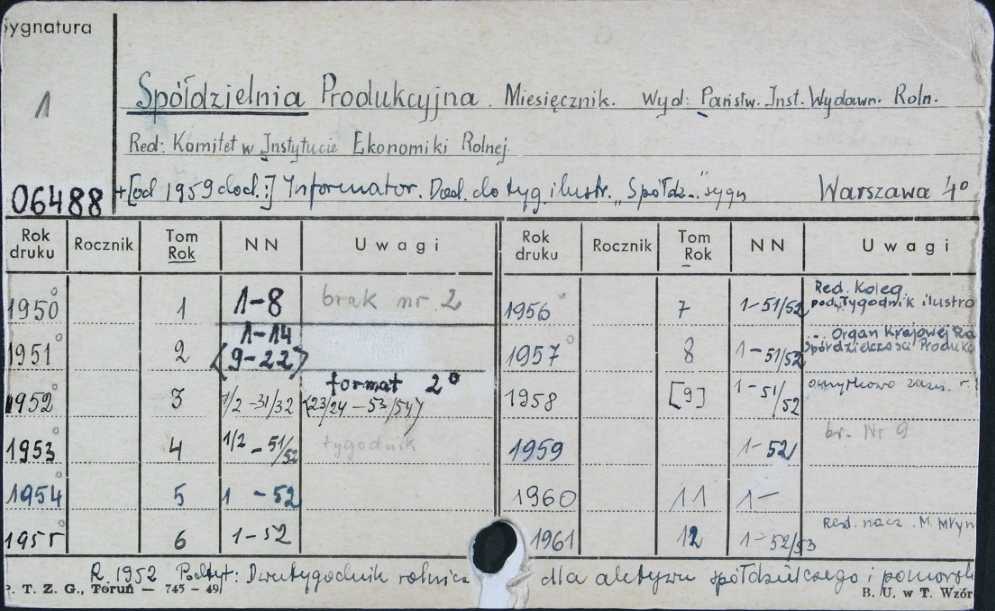 Sygnatura
1
Spółdzielnia Produkcyjna. Miesięcznik. Wyd: Państw. Inst. Wydawn. Roln.
Red: Komitet w Instytucie Ekonomiki Rolnej
06488 +[od 1959 dod.:] Informator. Dod. do tyg. ilustr. „Spółdz." sygn Warszawa 4°
Rok druku Rocznik Tom Rok NN Uwagi Rok druku Rocznik Tom Rok NN Uwagi
1950 1 1-8 brak nr 2 1956 7 1-51/52 Red. Koleg. pod. Tygodnik ilustro
1951 2 1-14 (9-22) 1957 8 1-51/52 Organ Krajowej Ra Spółdzielczości Produkc
1952 3 1/2-31/32 format 2° (23/24-53/54) 1958 [9] 1-51/52 omyłkowo
1953 4 1/2-51/52 tygodnik 1959 1-52 br. Nr 9
1954 5 1-52 1960 11 1-
1955 6 1-52 1961 12 1-52/53 Red. nacz. M. Młyn
R. 1952 Podtyt: Dwutygodnik dla aktywu spółdzielczego i
P. T. Z. G., Toruń — 745 - 49 B. U. w T. Wzór